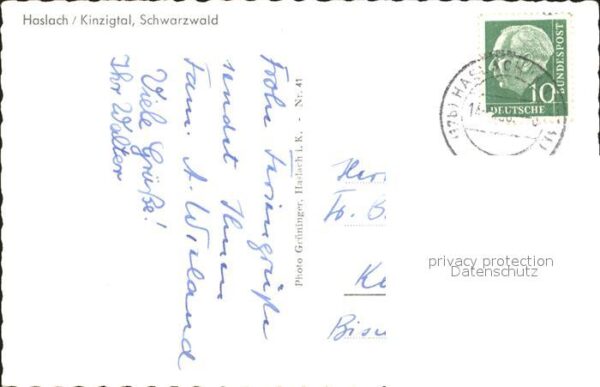 Haslach / Kinzigtal, Schwarzwald
Frohe Feriengrüße
sendet Ihnen
Fam. A. Wieland
Viele Grüße!
Ihr Walter
Photo Grüninger, Haslach i. K. - Nr. 41
10
DEUTSCHE
BUNDESPOST
(17b) HASLACH
Herr
Fr. B
Ke
Bism
privacy protection
Datenschutz